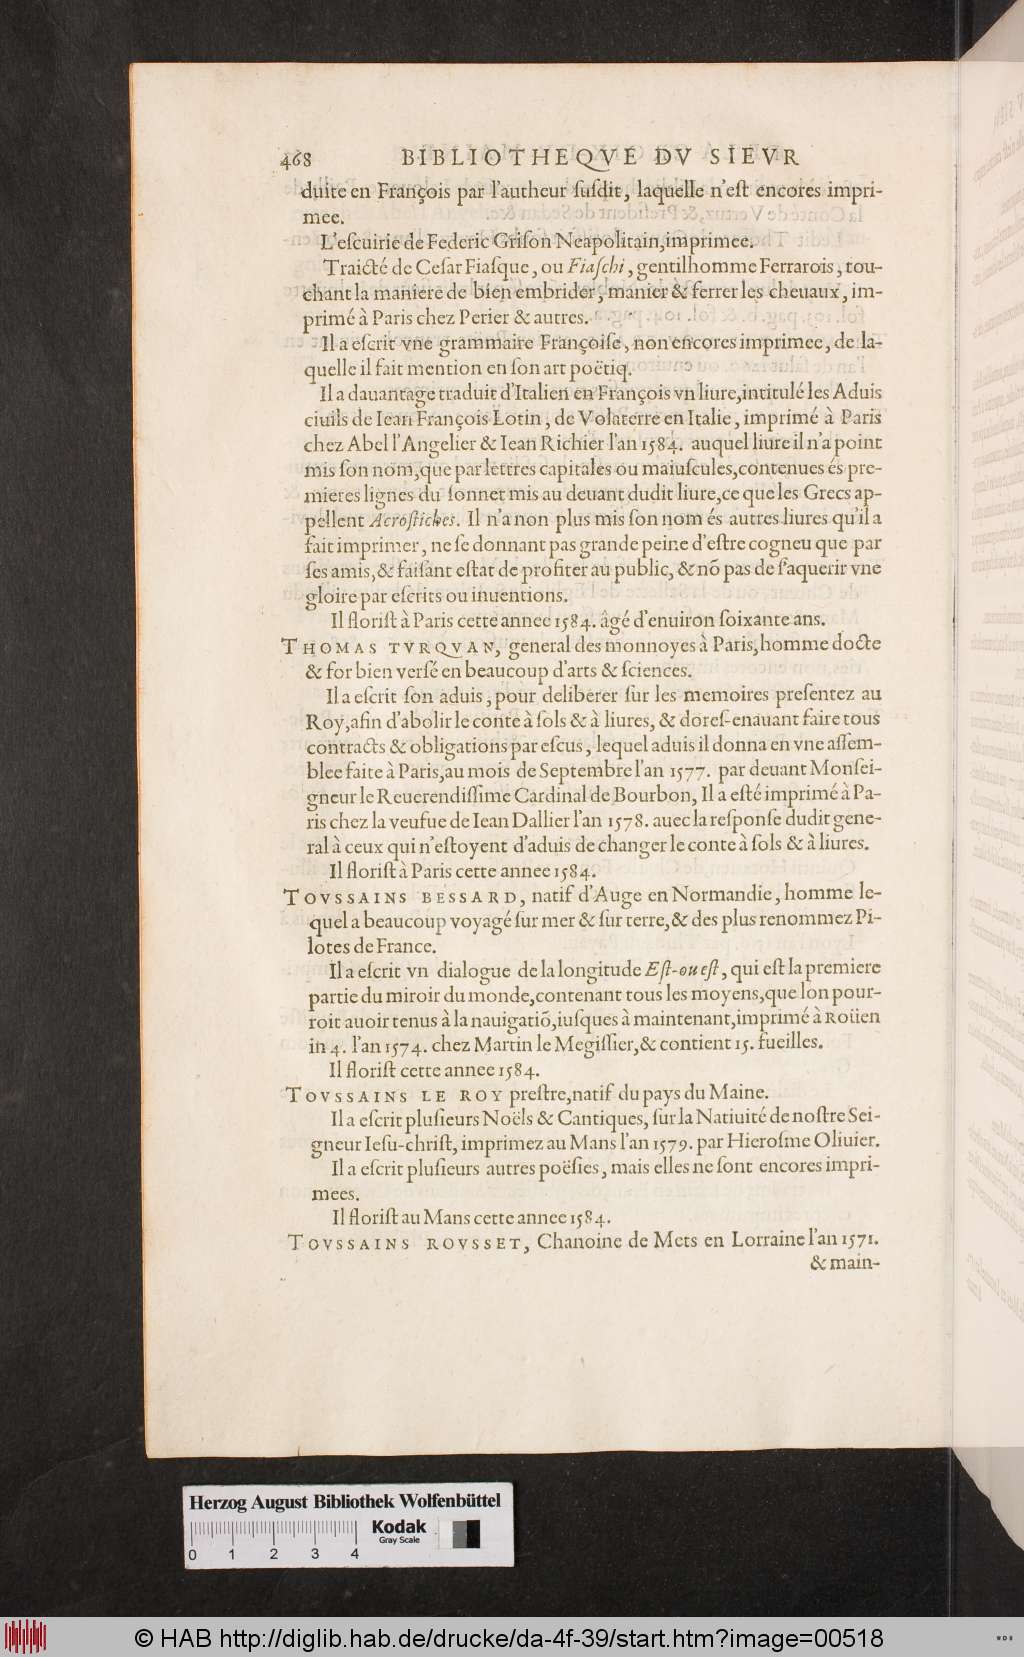 468 BIBLIOTHEQVE DV SIEVR
duite en François par l'autheur ſuſdit, laquelle n'eſt encores impri-
mee.
L'eſcuirie de Federic Griſon Neapolitain,imprimee.
Traicté de Ceſar Fiaſque, ou Fiaſchi, gentilhomme Ferrarois, tou-
chant la maniere de bien embrider, manier & ferrer les cheuaux, im-
primé à Paris chez Perier & autres.
Il a eſcrit vne grammaire Françoiſe, non encores imprimee, de la-
quelle il fait mention en ſon art poëtiq.
Il a dauantage traduit d'Italien en François vn liure,intitulé les Aduis
ciuils de Iean François Lotin, de Volaterre en Italie, imprimé à Paris
chez Abel l'Angelier & Iean Richier l'an 1584. auquel liure il n'a point
mis ſon nom,que par lettres capitales ou maiuſcules,contenues és pre-
mieres lignes du ſonnet mis au deuant dudit liure,ce que les Grecs ap-
pellent Acroſtiches. Il n'a non plus mis ſon nom és autres liures qu'il a
fait imprimer, ne ſe donnant pas grande peine d'eſtre cogneu que par
ſes amis,& faiſant eſtat de profiter au public, & nõ pas de ſ'aquerir vne
gloire par eſcrits ou inuentions.
Il floriſt à Paris cette annee 1584. âgé d'enuiron ſoixante ans.
THOMAS TVRQVAN, general des monnoyes à Paris,homme docte
& for bien verſé en beaucoup d'arts & ſciences.
Il a eſcrit ſon aduis, pour deliberer ſur les memoires preſentez au
Roy,afin d'abolir le conte à ſols & à liures, & doreſ-enauant faire tous
contracts & obligations par eſcus, lequel aduis il donna en vne aſſem-
blee faite à Paris,au mois de Septembre l'an 1577. par deuant Monſei-
gneur le Reuerendiſſime Cardinal de Bourbon, Il a eſté imprimé à Pa-
ris chez la veufue de Iean Dallier l'an 1578. auec la reſponſe dudit gene-
ral à ceux qui n'eſtoyent d'aduis de changer le conte à ſols & à liures.
Il floriſt à Paris cette annee 1584.
TOVSSAINS BESSARD, natif d'Auge en Normandie, homme le-
quel a beaucoup voyagé ſur mer & ſur terre,& des plus renommez Pi-
lotes de France.
Il a eſcrit vn dialogue de la longitude Eſt-oueſt, qui eſt la premiere
partie du miroir du monde,contenant tous les moyens,que lon pour-
roit auoir tenus à la nauigatiõ,iuſques à maintenant,imprimé à Roüen
in 4. l'an 1574. chez Martin le Megiſſier,& contient 15. fueilles.
Il floriſt cette annee 1584.
TOVSSAINS LE ROY preſtre,natif du pays du Maine.
Il a eſcrit pluſieurs Noëls & Cantiques, ſur la Natiuité de noſtre Sei-
gneur Ieſu-chriſt, imprimez au Mans l'an 1579. par Hieroſme Oliuier.
Il a eſcrit pluſieurs autres poëſies, mais elles ne ſont encores impri-
mees.
Il floriſt au Mans cette annee 1584.
TOVSSAINS ROVSSET, Chanoine de Mets en Lorraine l'an 1571.
& main-
Herzog August Bibliothek Wolfenbüttel
Kodak
Gray Scale
0 1 2 3 4
© HAB http://diglib.hab.de/drucke/da-4f-39/start.htm?image=00518